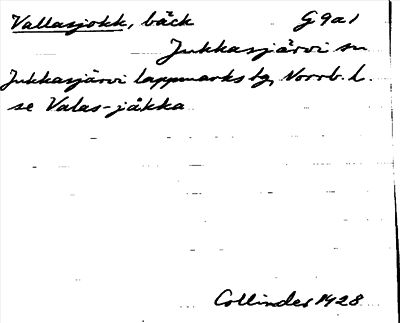 Vallasjokk, bäck G9a1
Jukkasjärvi sn
Jukkasjärvi lappmarks tg, Norrb. l.
se Valas-jåkka
Collinder 1928